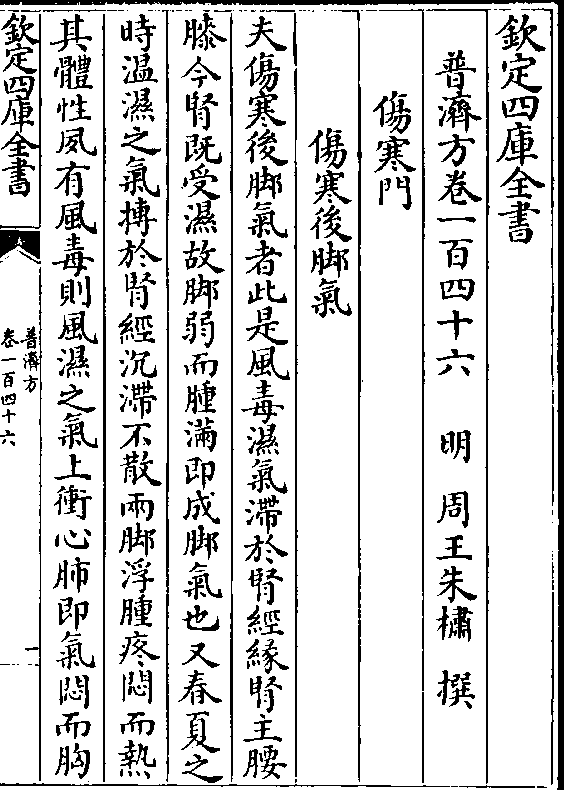 欽定四庫全書
普濟方卷一百四十六　明　周王朱橚　撰
傷寒門
傷寒後脚氣
夫傷寒後脚氣者此是風毒濕氣滯於腎經緣腎主腰
膝今腎既受濕故脚弱而腫滿即成脚氣也又春夏之
時温濕之氣搏於腎經沉滯不散兩脚浮腫疼悶而熱
其體性夙有風毒則風濕之氣上衝心肺即氣悶而胸
欽定四庫全書
普濟方
卷一百四十六
一